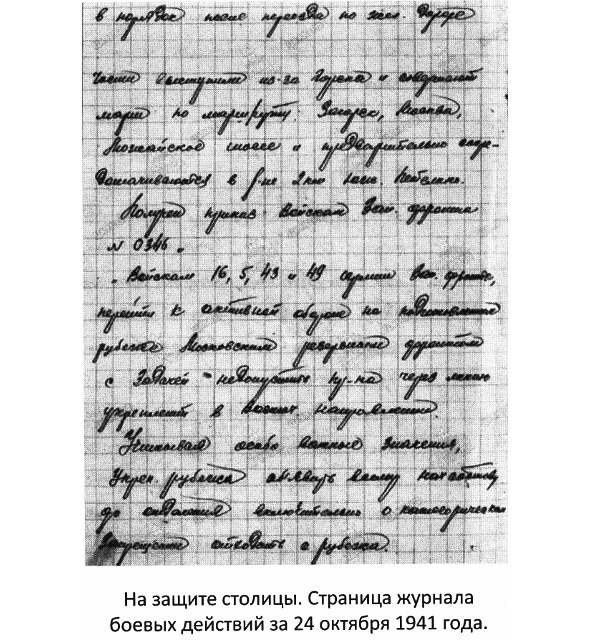 в порядок после переезда по жел. дороге
Части выступили из-за Горска и совершают
марш по маршруту: Загорск, Москва,
Можайское шоссе и предварительно сосре-
дотачиваются в р-не 2 км
Получен приказ Войскам Зап. фронта
N 0346.
„Войскам 16, 5, 43 и 49 армии Зап. фронта,
перейти к активной обороне на подготовленном
рубеже Московским резервным фронтом
с задачей недопустить пр-ка через линию
укреплений в восточн. направлении.
Учитывая особо важные значения,
Укреп. рубежа объявить всему нач. составу
до отделения включительно о категорическом
запрещении отходить с рубежа.
На защите столицы. Страница журнала
боевых действий за 24 октября 1941 года.